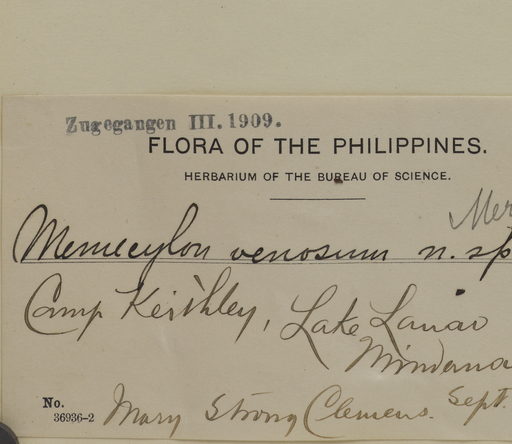 Zugegangen III. 1909.
FLORA OF THE PHILIPPINES.
HERBARIUM OF THE BUREAU OF SCIENCE.
Mer
Memecylon venosum n. sp
Camp Keithley, Lake Lanao
Mindana
No.
36936-2
Mary Strong Clemens. Sept.